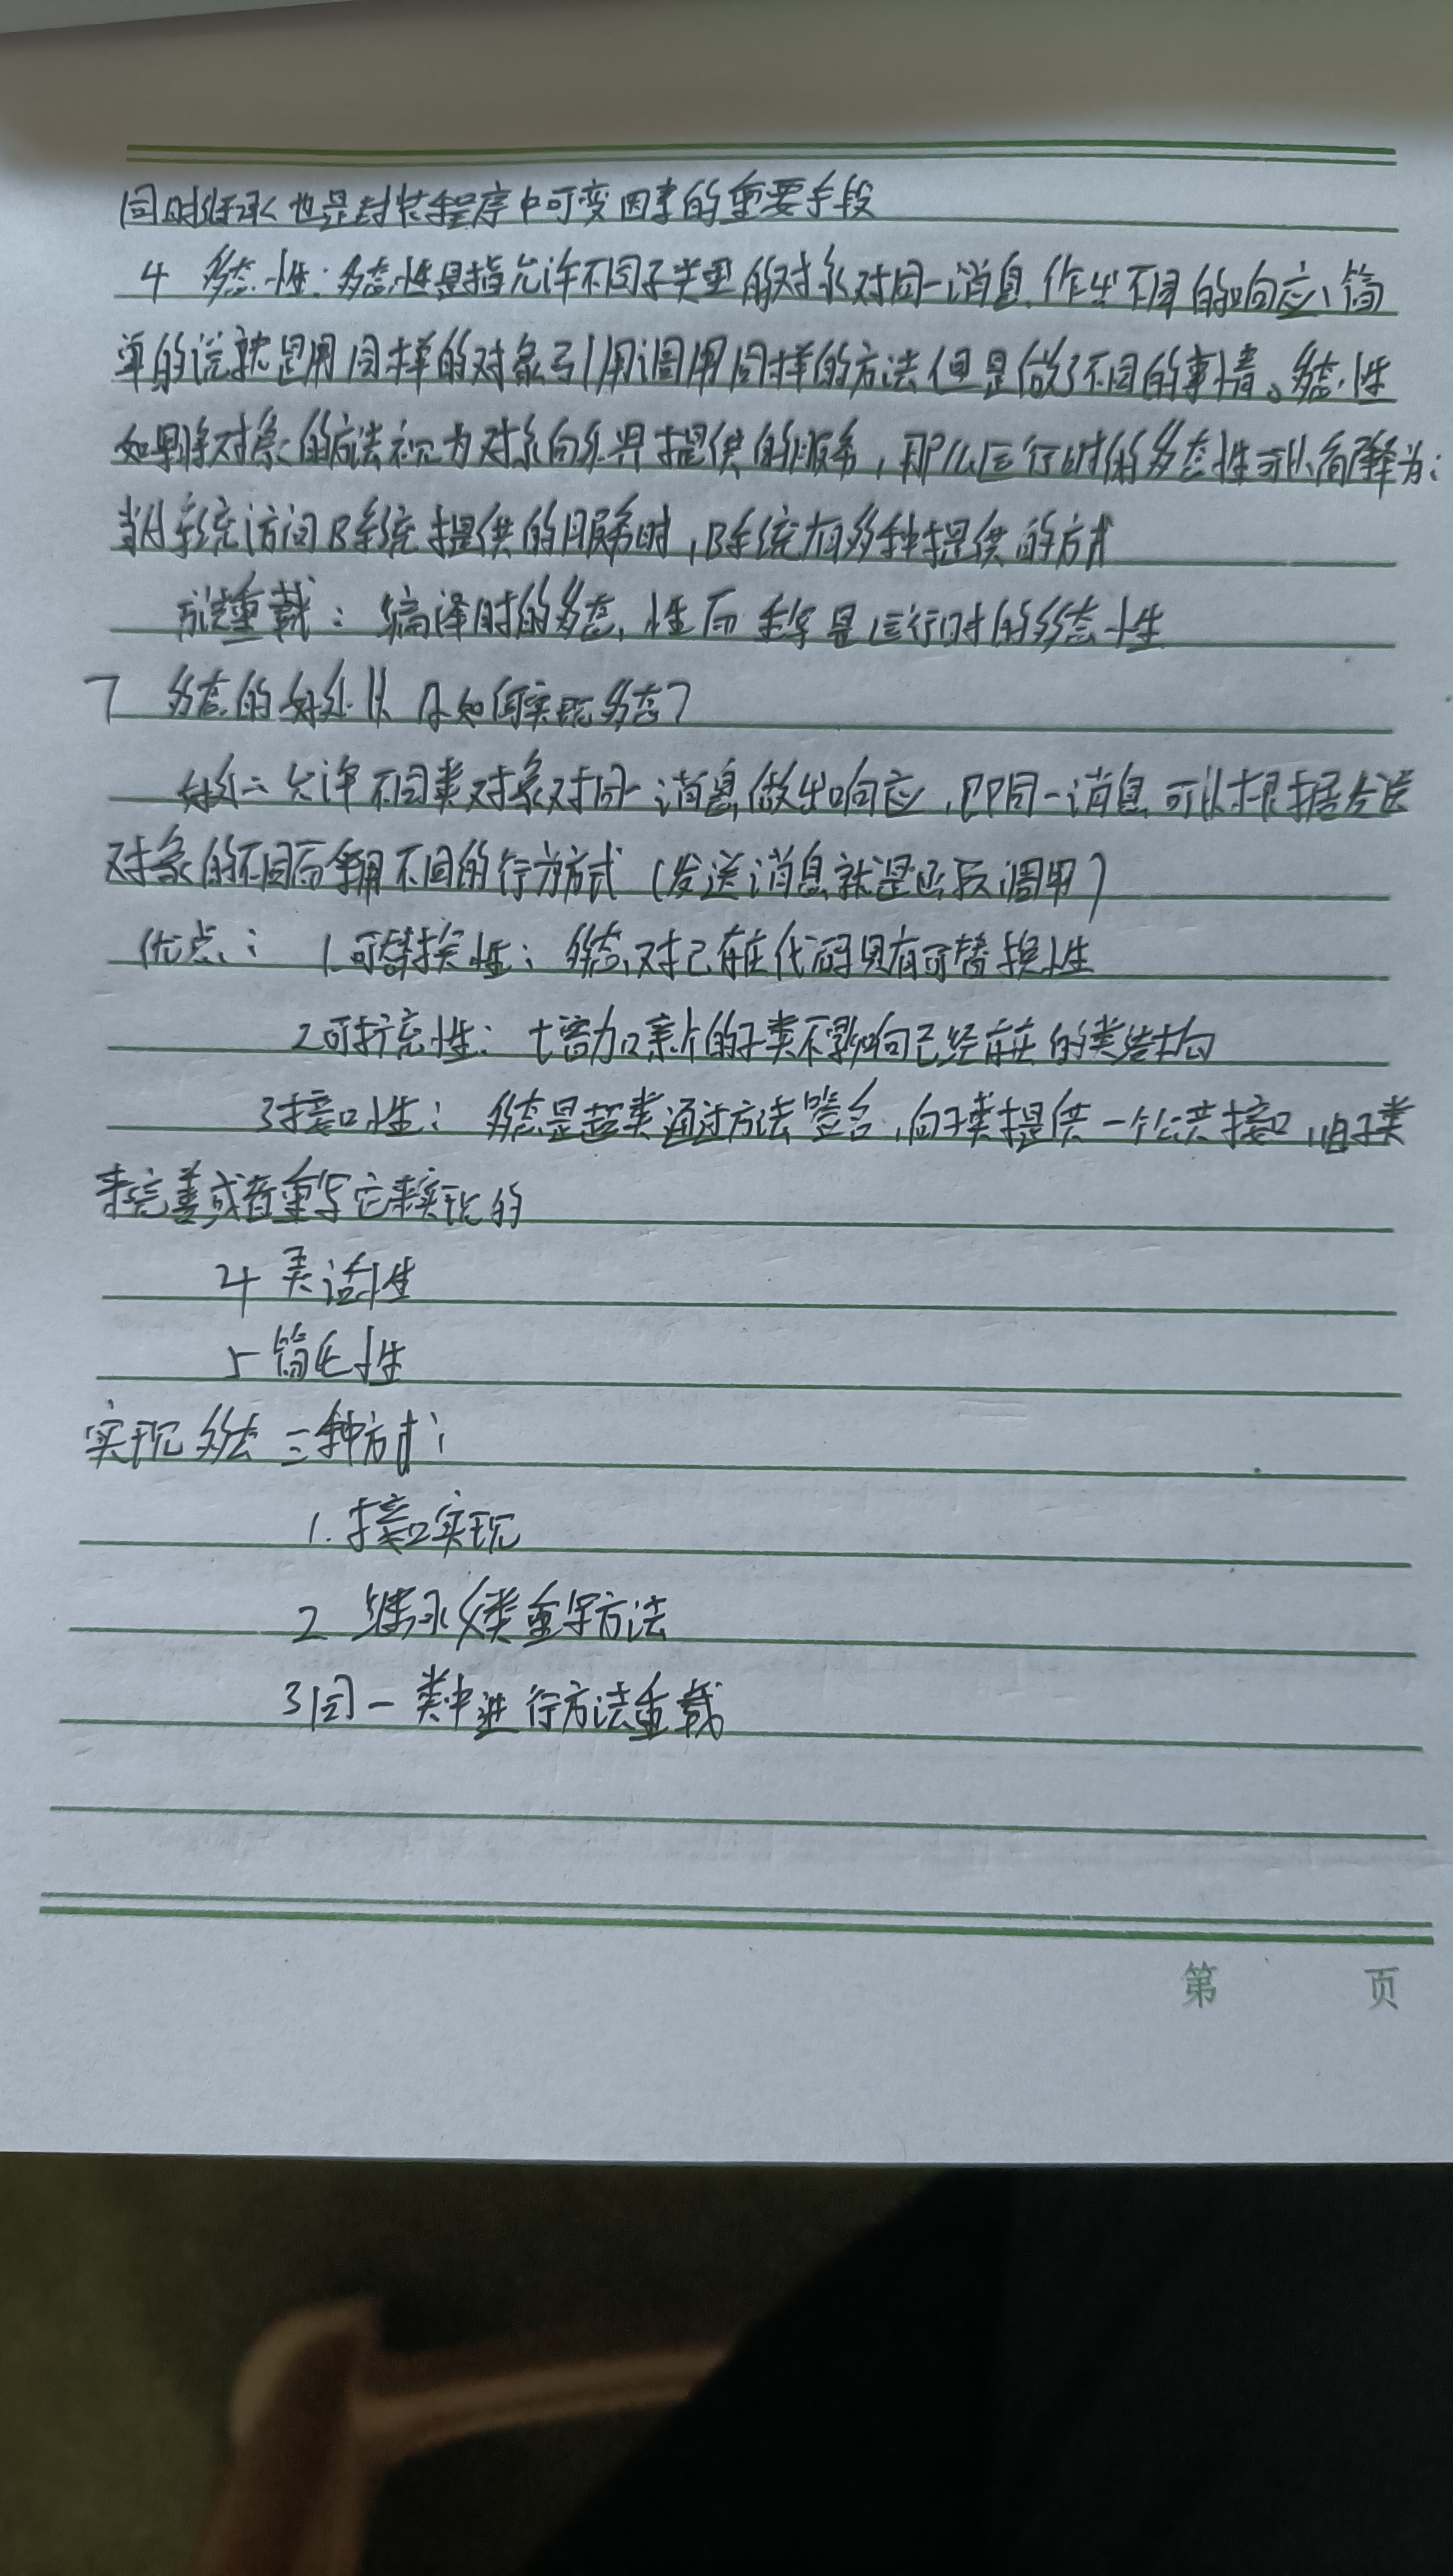 同时继承也是封装程序中可变因素的重要手段
4 多态性：多态性是指允许不同子类型的对象对同一消息作出不同的响应、简
单的说就是用同样的对象引用调用同样的方法但是做了不同的事情。多态性
如果将对象的方法视为对象向外界提供的服务，那么运行时的多态性可以解释为：
当A系统访问B系统提供的服务时，B系统有多种提供的方式
方法重载：编译时的多态性而重写是运行时的多态性
7 多态的好处以及如何实现多态？
好处：允许不同类对象对同一消息做出响应，即同一消息可以根据发送
对象的不同而采用不同的行为方式（发送消息就是函数调用）
优点：1.可替换性：多态对已存在代码具有可替换性
2可扩充性：增加新的子类不影响已经存在的类结构
3接口性：多态是超类通过方法签名，向子类提供一个公共接口，由子类
来完善或者重写它来实现的
4 灵活性
5 简化性
实现多态三种方式：
1.接口实现
2 继承父类重写方法
3同一类中进行方法重载
第 页